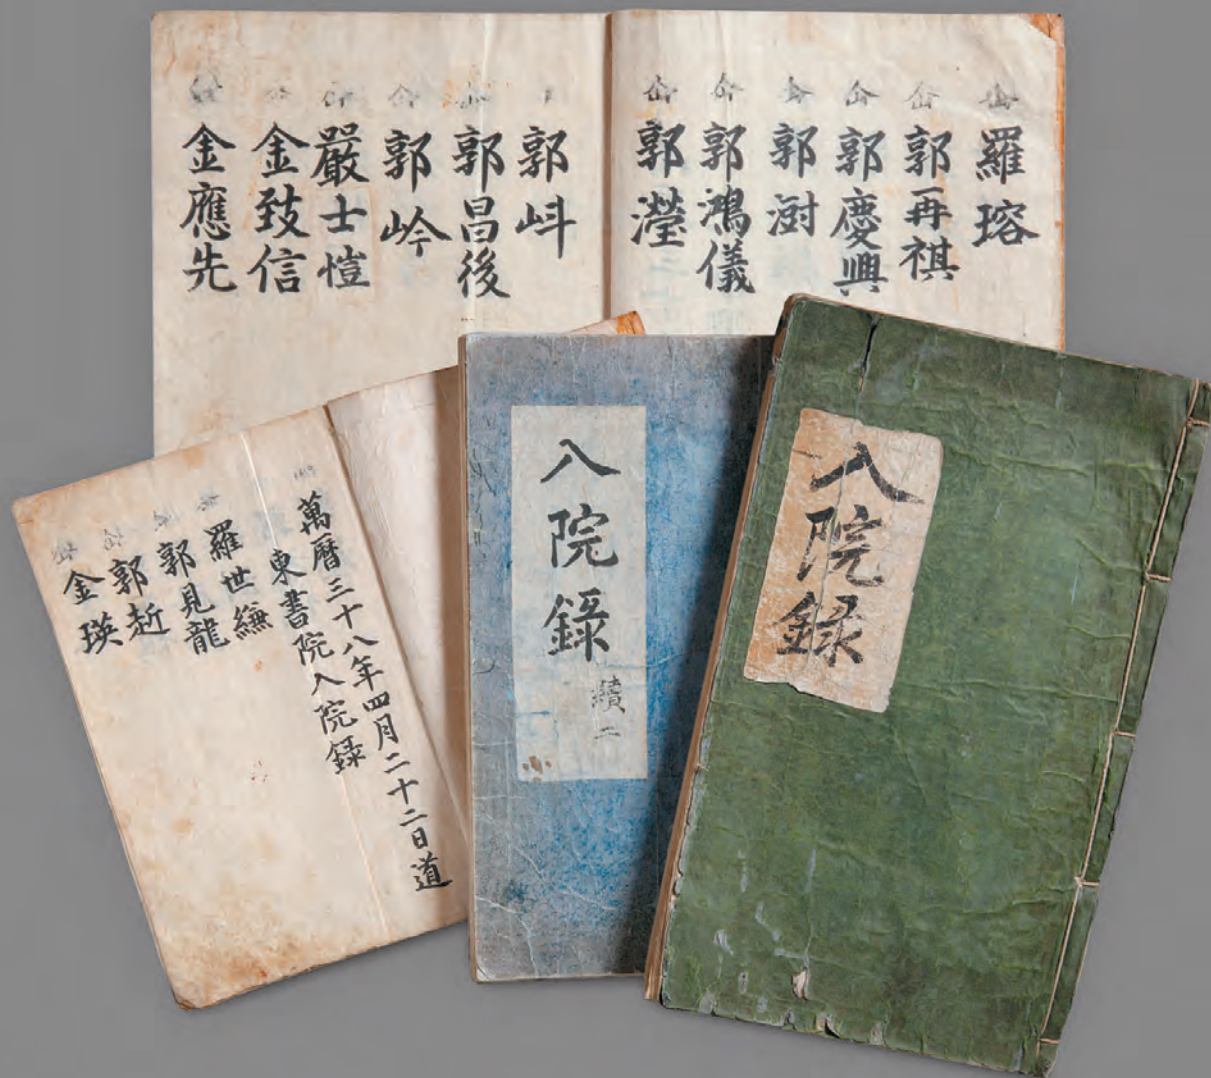 羅瑢
郭再祺
郭慶興
郭澍
郭鴻儀
郭瀅
郭㞳
郭昌後
郭岭
嚴士愷
金致信
金應先
萬曆三十八年四月二十二日道
東書院入院錄
羅世縑
郭見龍
郭䞘
金瑛
入院錄
續二
入院録